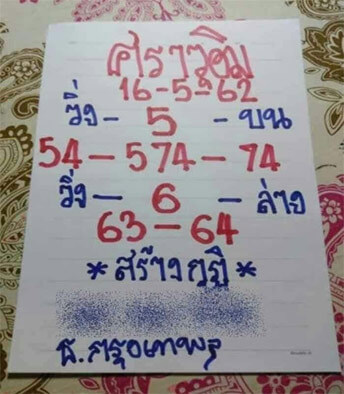 ศราวุฒิ
16-5-62
วิ่ง - 5 - บน
54 - 574 - 74
วิ่ง - 6 - ล่าง
63 - 64
* สร้างกุฏิ *
ธ. กรุงเทพ